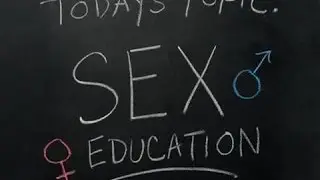 TODAYS TOPIC:
SEX
EDUCATION